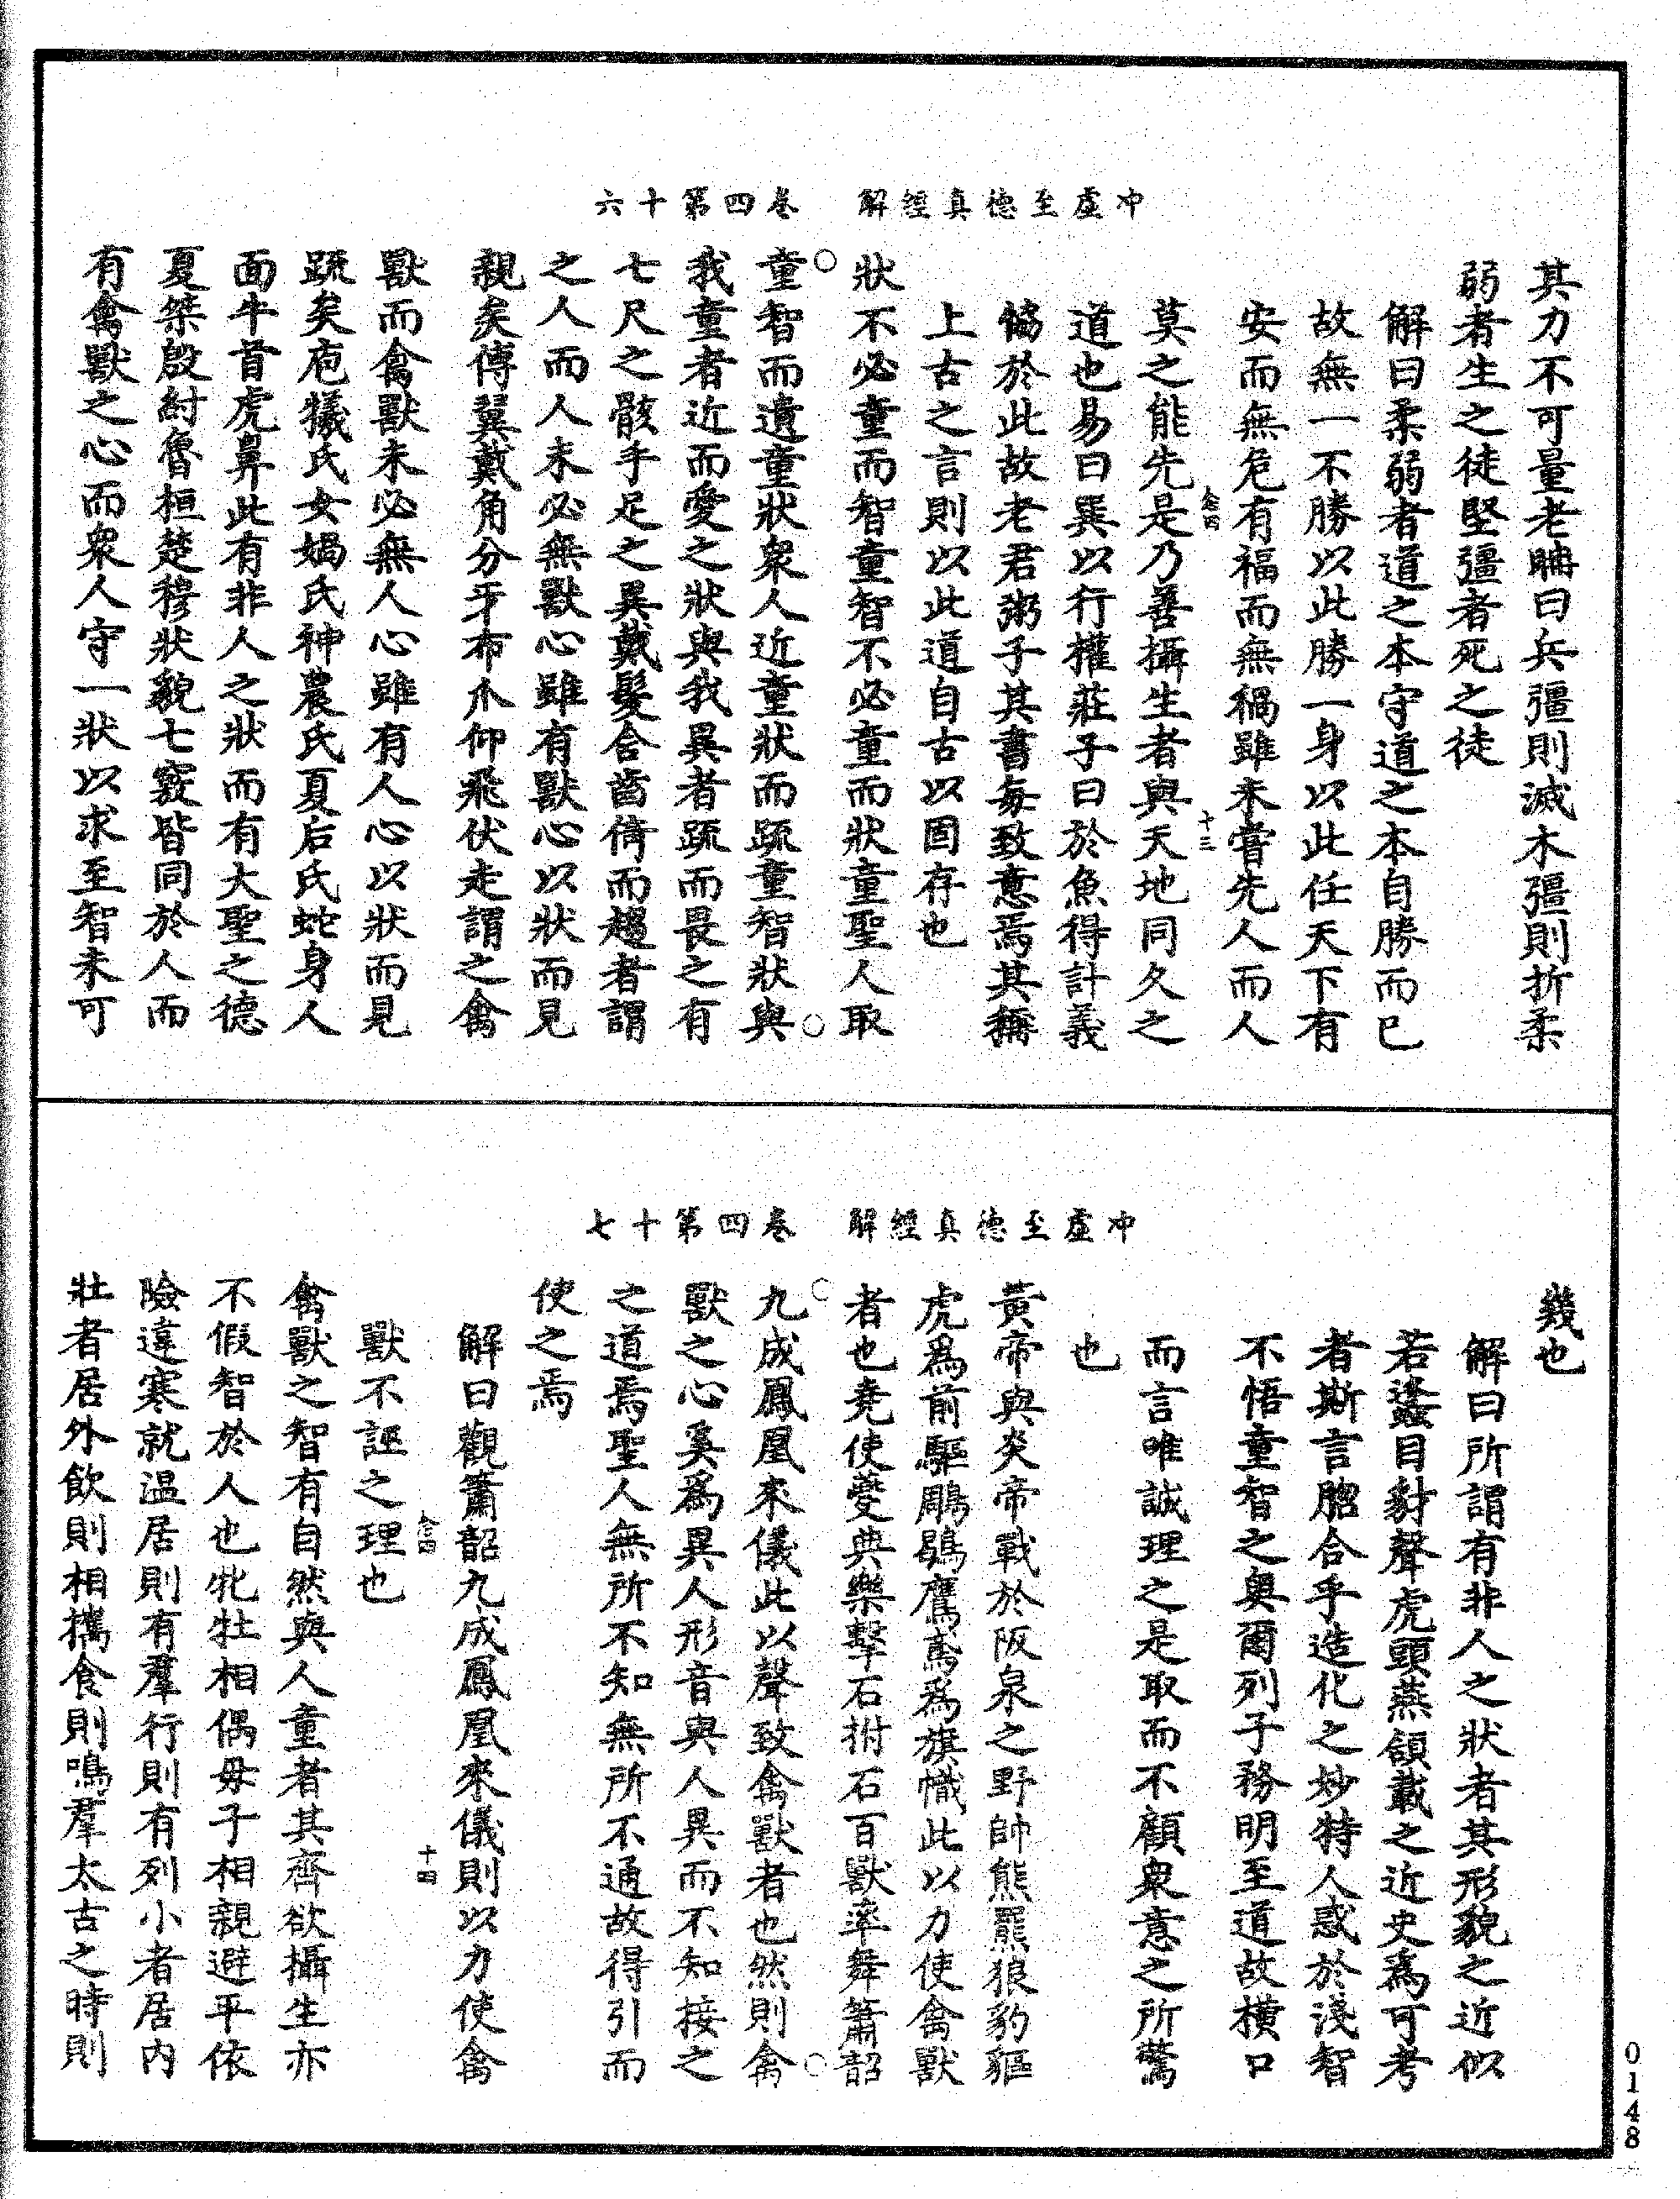 冲虛至德真經解　卷四第十六
其力不可量老聃曰兵彊則滅木彊則折柔
弱者生之徒堅彊者死之徒
解曰柔弱者道之本守道之本自勝而已
故無一不勝以此勝一身以此任天下有
安而無危有福而無禍雖未嘗先人而人
莫之能先是乃善攝生者與天地同久之
道也易曰巽以行權莊子曰於魚得計義
恊於此故老君粥子其書每致意焉其稱
上古之言則以此道自古以固存也
狀不必童而智童智不必童而狀童聖人取
童智而遺童狀衆人近童狀而疏童智狀與
我童者近而愛之狀與我異者疏而畏之有
七尺之骸手足之異戴髮含齒倚而趨者謂
之人而人未必無獸心雖有獸心以狀而見
親矣傅翼戴角分牙布爪仰飛伏走謂之禽
獸而禽獸未必無人心雖有人心以狀而見
疏矣庖犧氏女媧氏神農氏夏后氏蛇身人
面牛首虎鼻此有非人之狀而有大聖之德
夏桀殷紂魯桓楚穆狀貌七竅皆同於人而
有禽獸之心而衆人守一狀以求至智未可
十三
冲虛至德真經解　卷四第十七
幾也
解曰所謂有非人之狀者其形貌之近似
若蠭目豺聲虎頭燕頷載之近史爲可考
者斯言脗合乎造化之妙特人惑於淺智
不悟童智之奥爾列子務明至道故橫口
而言唯誠理之是取而不顧衆意之所驚
也
黃帝與炎帝戰於阪泉之野帥熊羆狼豹貙
虎爲前驅鵰鶡鷹鳶爲旗幟此以力使禽獸
者也堯使夔典樂擊石拊石百獸率舞簫韶
九成鳳凰來儀此以聲致禽獸者也然則禽
獸之心奚爲異人形音與人異而不知接之
之道焉聖人無所不知無所不通故得引而
使之焉
解曰觀簫韶九成鳳凰來儀則以力使禽
獸不誣之理也
十四
禽獸之智有自然與人童者其齊欲攝生亦
不假智於人也牝牡相偶毋子相親避平依
險違寒就温居則有羣行則有列小者居内
壯者居外飲則相攜食則鳴羣太古之時則
0148